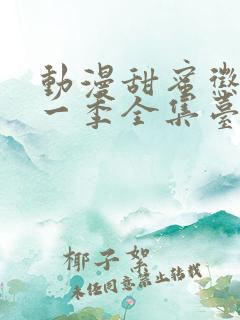 動漫甜蜜懲
一季全集臺
椰子絮
未经同意禁止转载